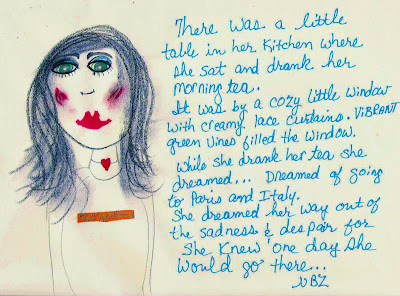 There was a little
table in her Kitchen where
she sat and drank her
morning tea.
It was by a cozy little window
with creamy lace curtains. ViBRANT
green vines filled the window.
While she drank her tea she
dreamed... Dreamed of going
to Paris and Italy.
She dreamed her way out of
the sadness & despair for
She Knew 'one day she
would go there...